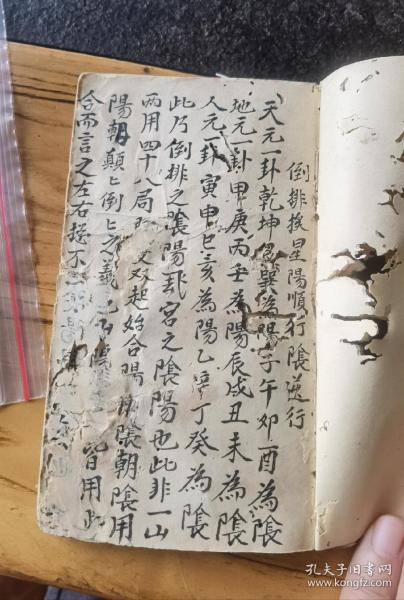 倒排挨星陽順行陰逆行
天元一卦乾坤艮巽為陽子午卯酉為陰
地元一卦甲庚丙壬為陽辰戌丑未為陰
人元一卦寅申巳亥為陽乙辛丁癸為陰
此乃倒排之陰陽非卦宮之陰陽也此非一山
兩用四十八局 双起始合陽 陰朝陰用
陽朝顛々倒々之義
合而言之左右挨不 皆用此
孔夫子旧书网
www.kongfz.com